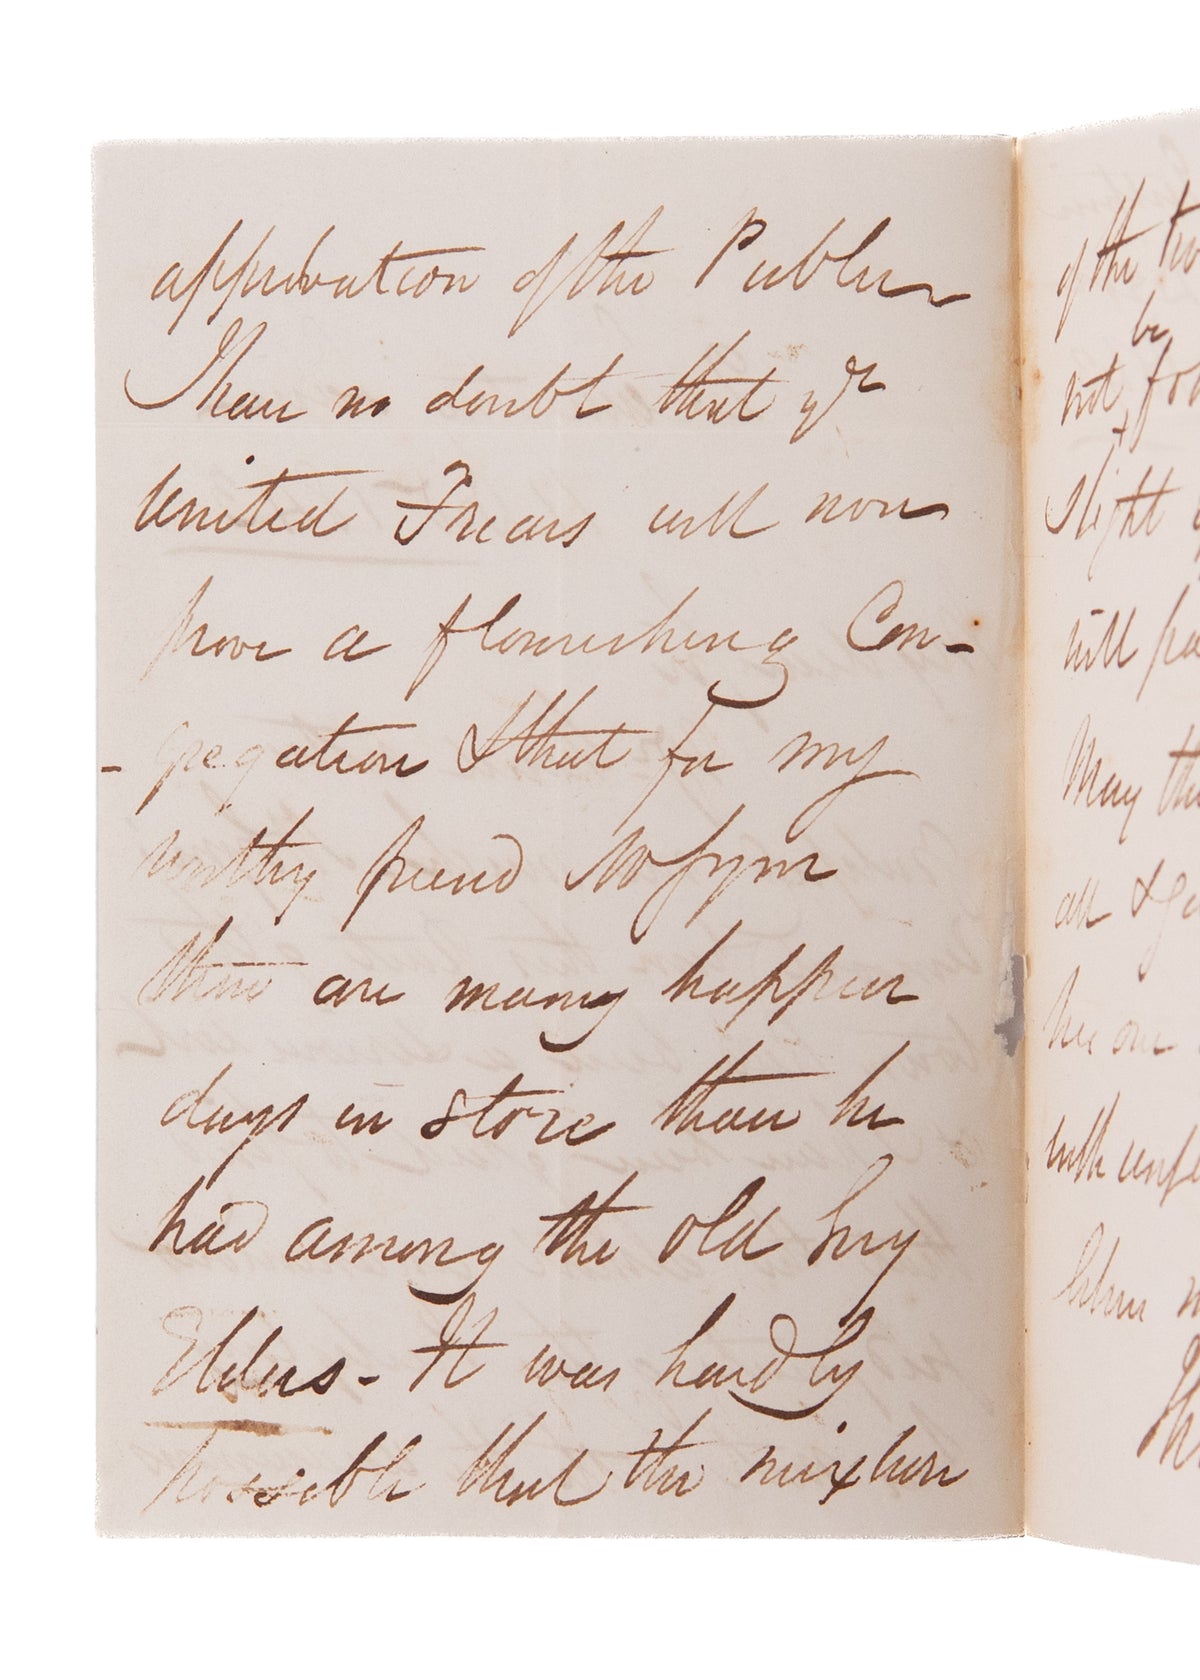 approbation of the Public
I have no doubt that yr
United Friars will now
prove a flourishing Con-
-gregation & that for my
worthy friend
there are many happier
days in store than he
had among the old
Elders - It was hardly
possible that the mixture
of the
be
not
slight
will
May the
all &
become
with